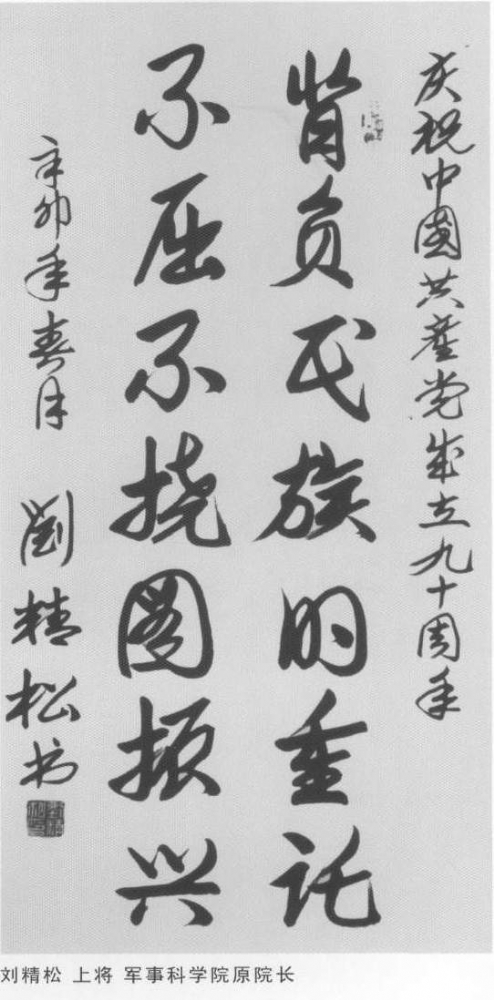 庆祝中國共産党成立九十周年
背负民族的重託
不屈不挠图振兴
辛卯年春月 劉精松书
刘精松 上将 军事科学院原院长